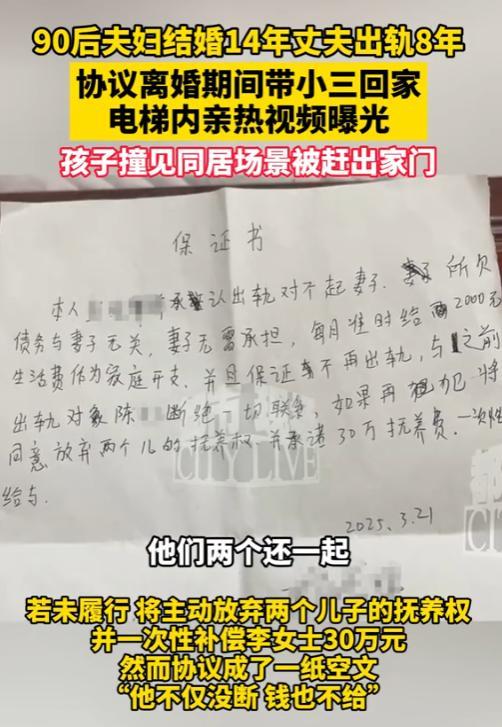 90后夫妇结婚14年丈夫出轨8年
协议离婚期间带小三回家
电梯内亲热视频曝光
孩子撞见同居场景被赶出家门
保证书
本人 承认出轨对不起妻子. 所欠
债务与妻子无关, 妻子无需承担, 每月准时给 2000元
生活费作为家庭开支. 并且保证 不再出轨, 与 之前
出轨对象陈 断绝一切联系, 如果再 犯 将
同意放弃两个儿的抚养权 并承诺30万抚养费. 一次性
给与.
CITY LIVE
2025.3.21
他们两个还一起
若未履行 将主动放弃两个儿子的抚养权
并一次性补偿李女士30万元
然而协议成了一纸空文
“他不仅没断 钱也不给”